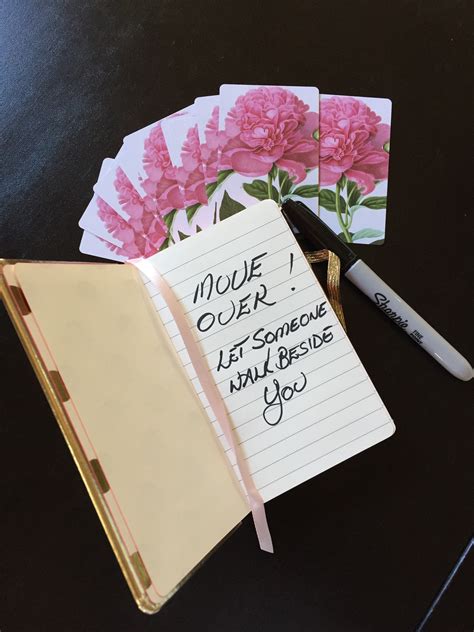 MOVE
OVER !
LET SOMEONE
WALK BESIDE
YOU
Sharpie